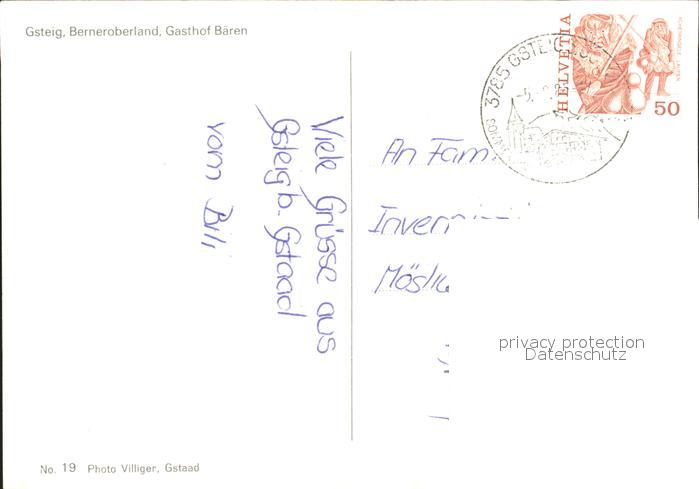 Gsteig, Berneroberland, Gasthof Bären
Viele Grüsse aus
Gsteig b. Gstaad
vom Bili
3785 GSTEIG
HELVETIA
50
An Fam
privacy protection
Datenschutz
No. 19 Photo Villiger, Gstaad